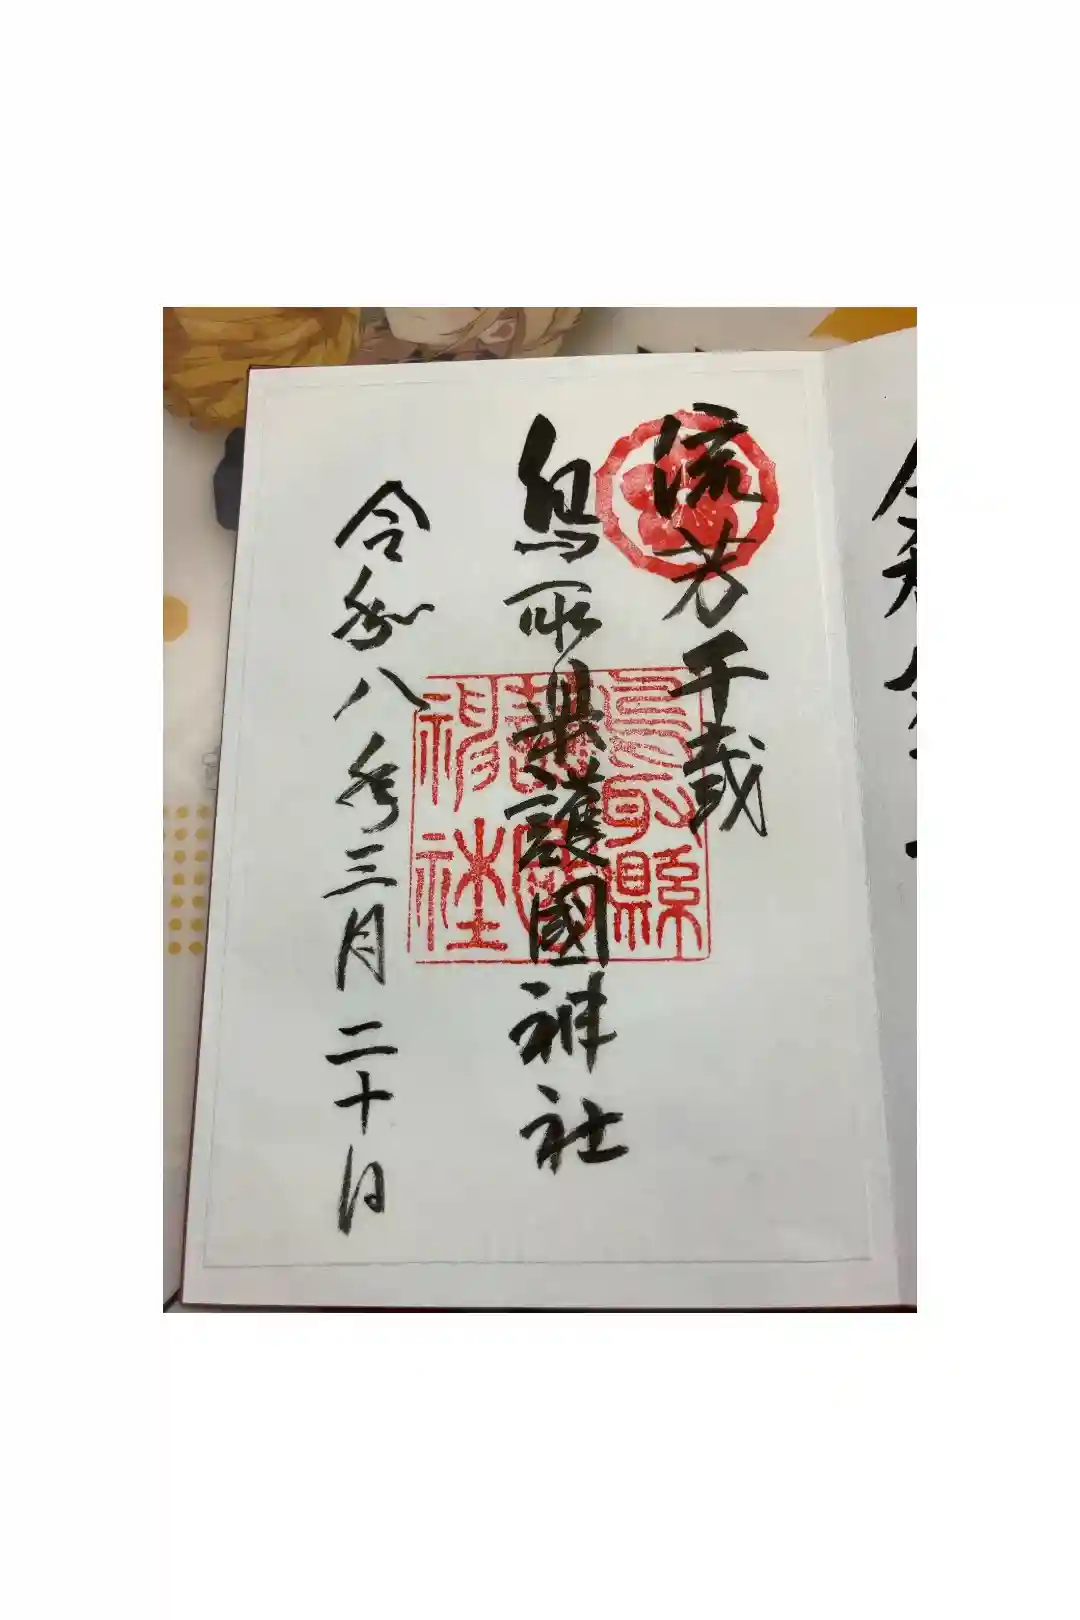 流芳千載
鳥取県護國神社
鳥取縣
護國
神社
令和八年三月二十日